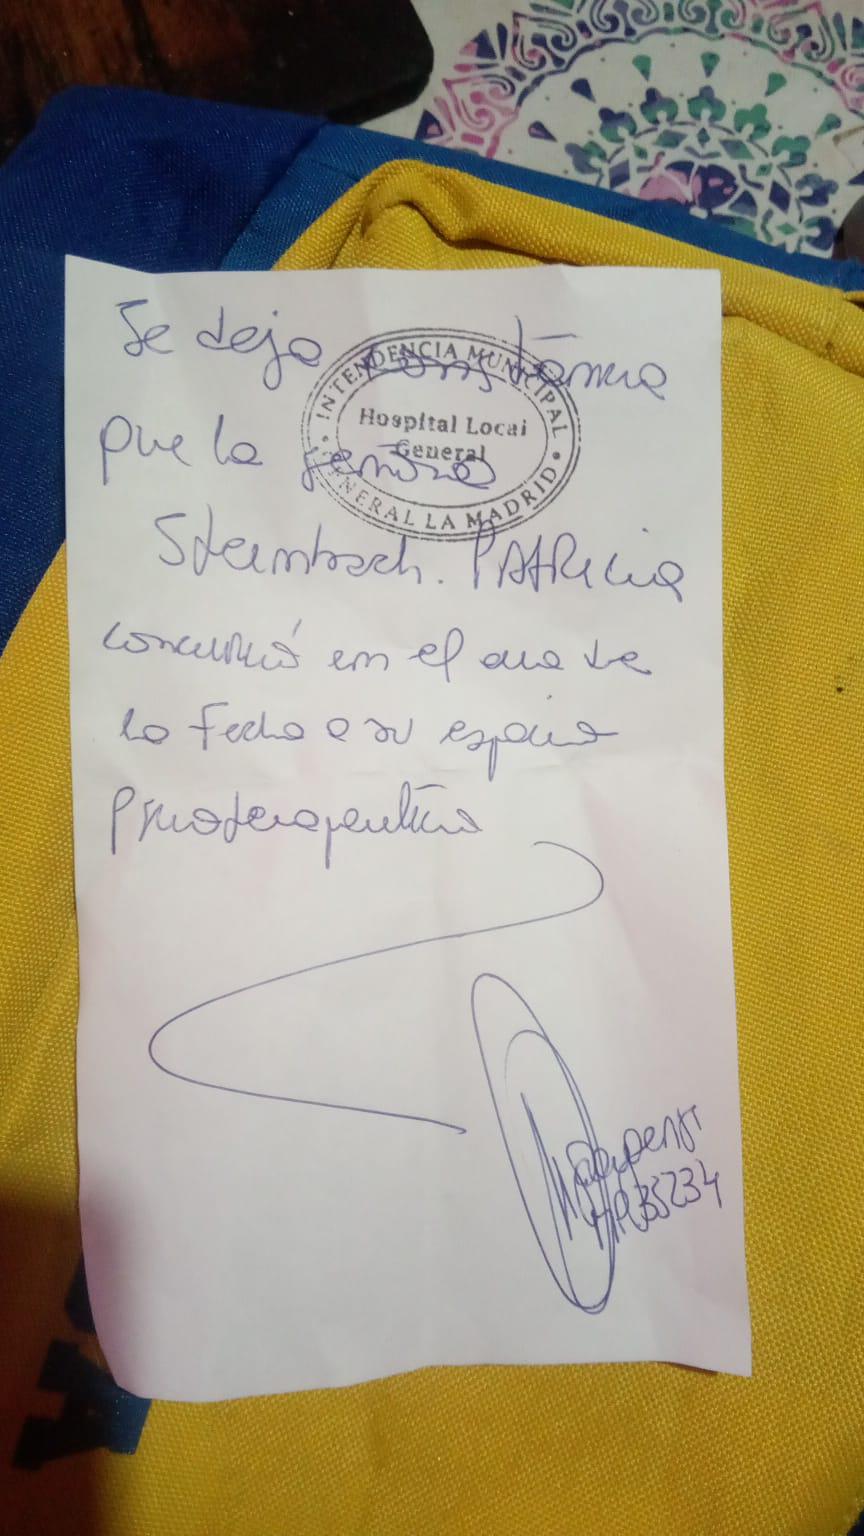 Se deja constancia
INTENDENCIA MUNICIPAL
Hospital Local
General
GENERAL LA MADRID
que la señora
Steinbach. PATRICIA
concurrió en el dia de
la fecha a su espacio
psicoterapeutico
35234